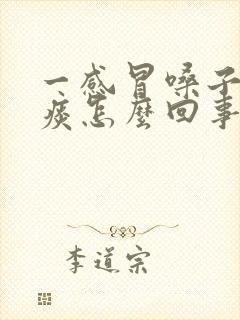 一感冒嗓子
痰怎麼回事
李道宗